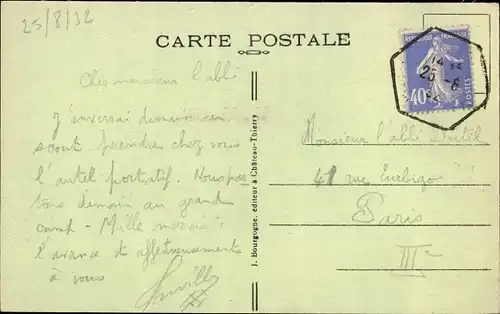 25/8/32
CARTE POSTALE
Cher monsieur l'abbé
J'enverrai demain un
scout prendre chez vous
l'autel portatif. Nous par
tons demain au grand
camp - Mille mercis à
l'avance et affectueusement
à vous
J. Bourgogne, éditeur à Château-Thierry
REPUBLIQUE FRANÇAISE
40c
POSTES
12
25 - 8
32
Monsieur l'abbé
41 rue
Paris
III